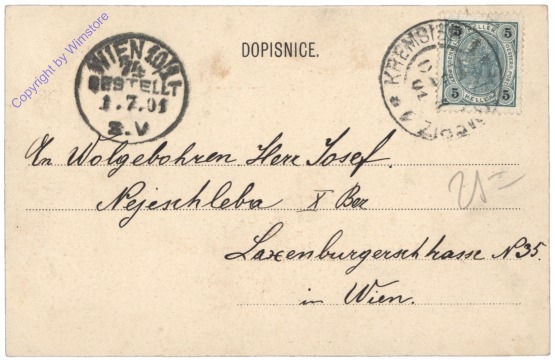 Copyright by Wimstore
WIEN 10/1
BESTELLT
1.7.01
3.V
DOPISNICE.
KREMSIER
5 5
HELLER
5 5
An Wolgebohren Herr Josef
Nejeschleba X Bez
Laxenburgerschtrasse N 35.
in Wien.
25=